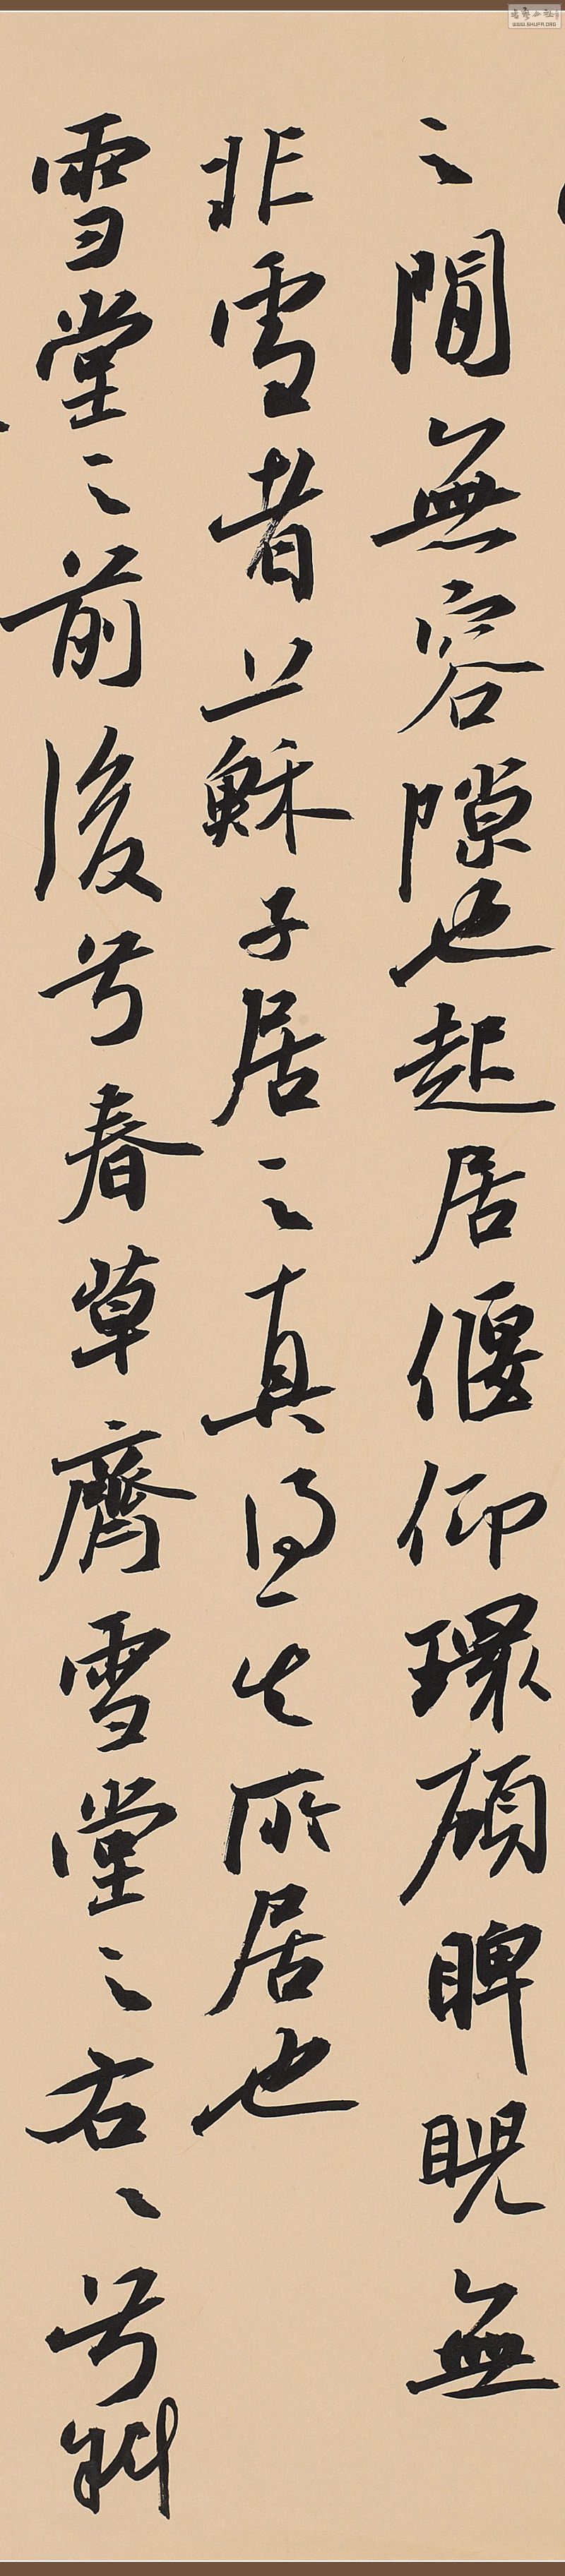 之間無容隙也起居偃仰環顧睥睨無
非雪者並蘇子居之真得其所居也
雪堂之前後兮春草齊雪堂之右ミ兮斜
WWW.SHUFA.ORG